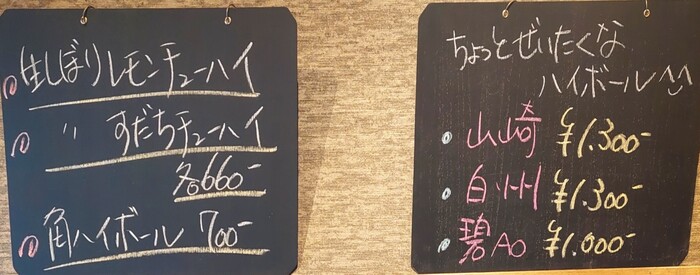 生しぼりレモンチューハイ
〃 すだちチューハイ
各660-
角ハイボール 700-
ちょっとぜいたくな
ハイボール^^
・山崎 ¥1.300-
・白州 ¥1.300-
・碧Ao ¥1.000-